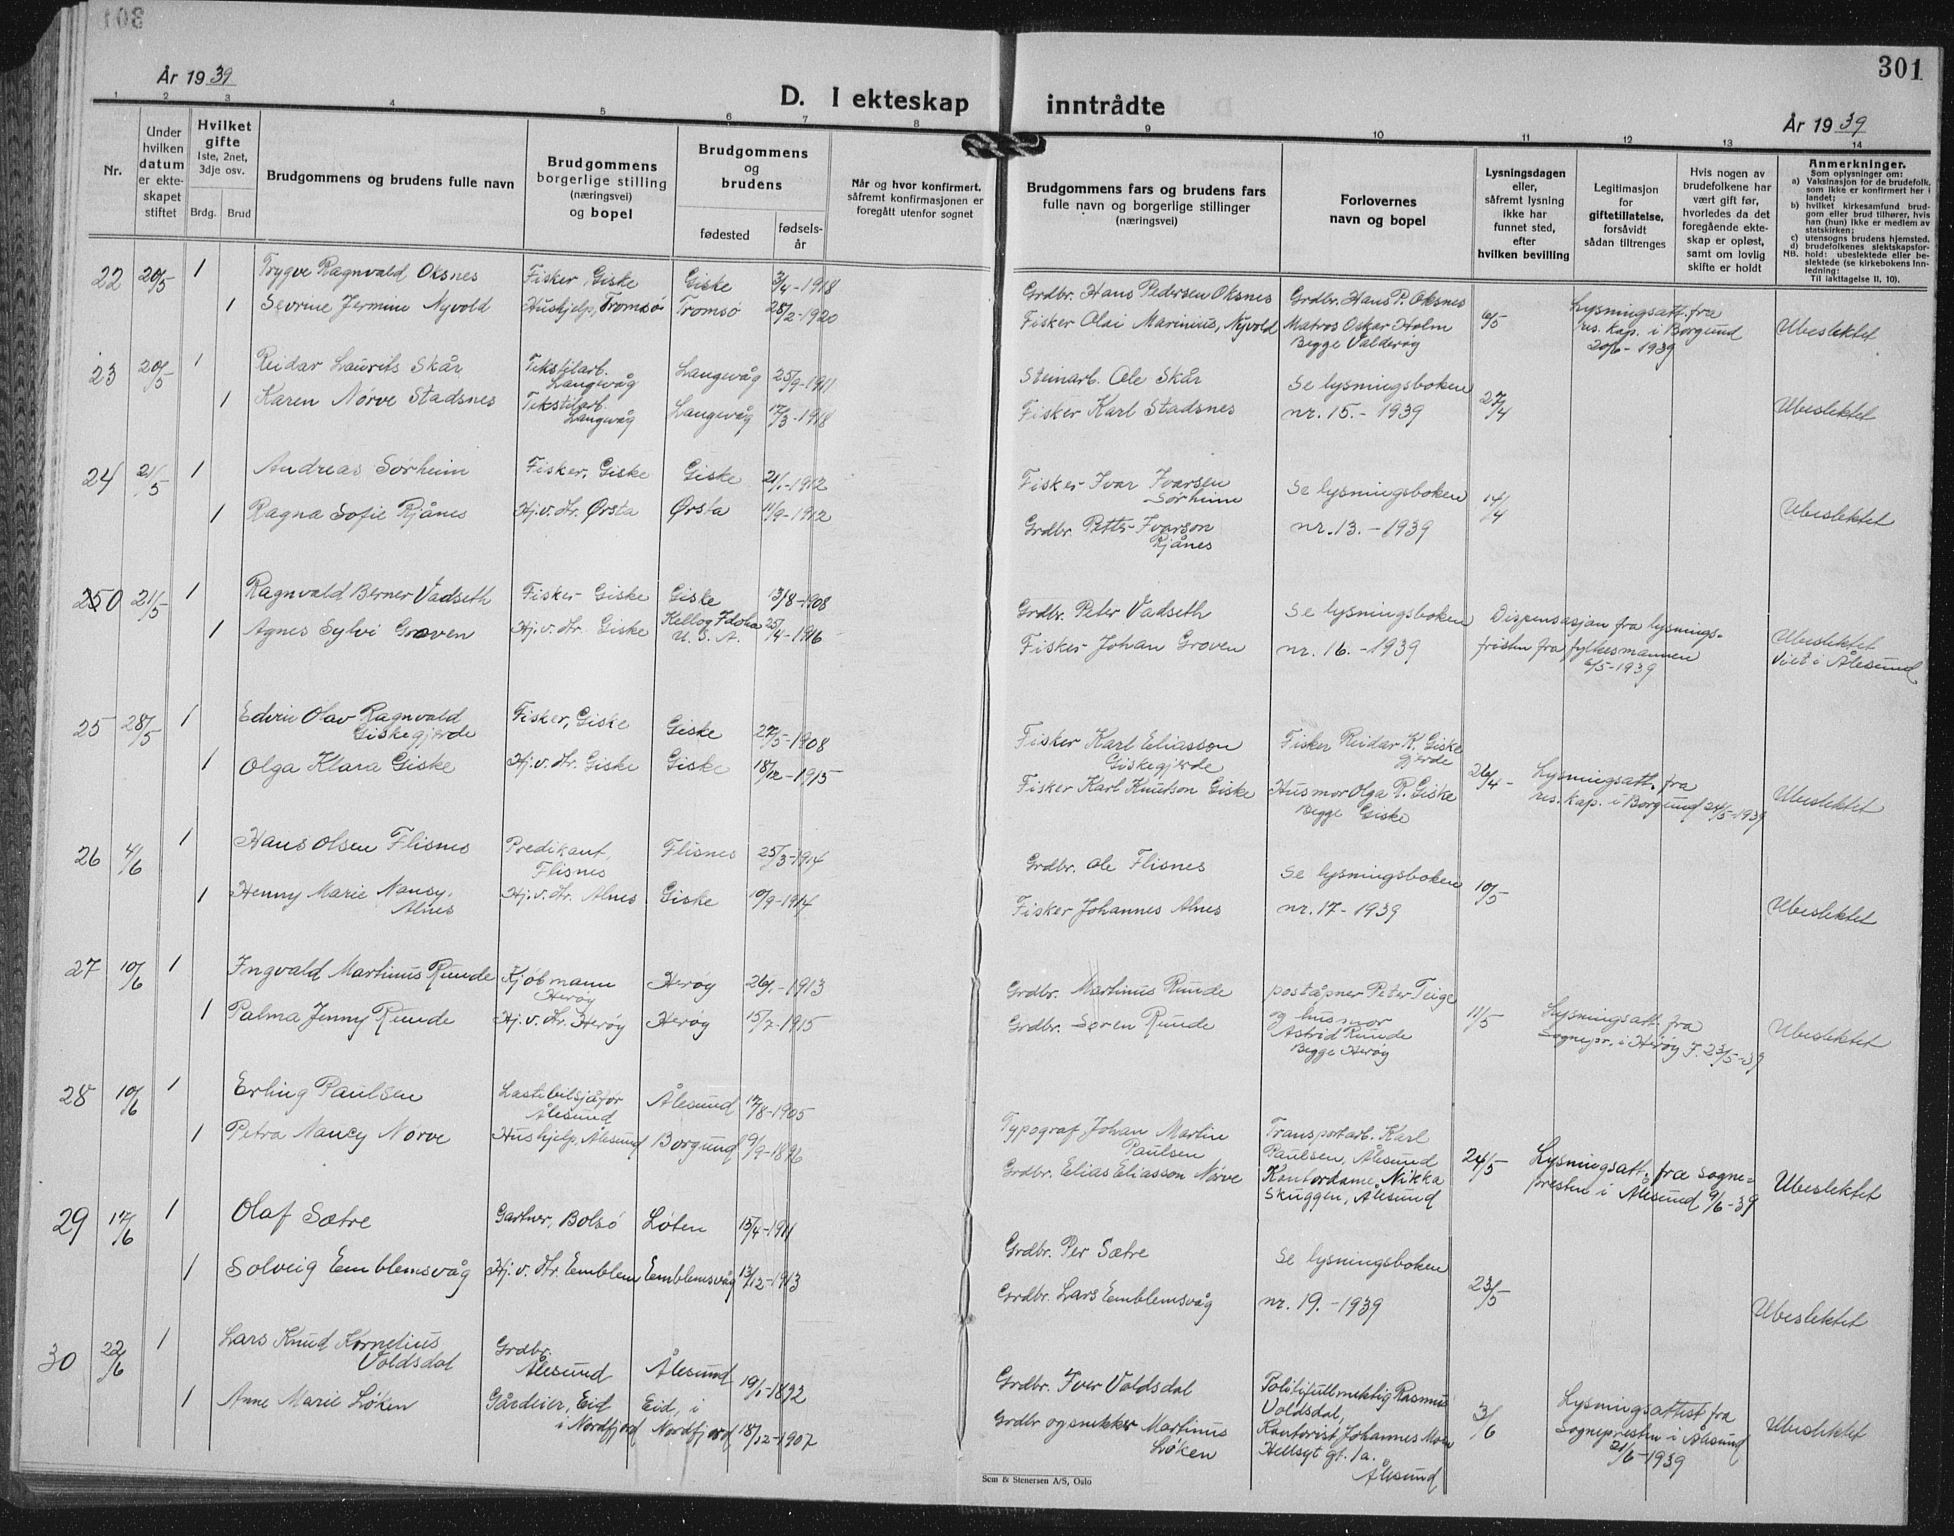 301
År 1939
D. I ekteskap inntrådte
301
År 1939
1 2 3 4 5 6 7 8 9 10 11 12 13 14
Nr.
Under hvilken datum er ekteskapet stiftet
Hvilket gifte
1ste, 2net, 3dje osv.
Brdg. Brud
Brudgommens og brudens fulle navn
Brudgommens borgerlige stilling (næringsvei) og bopel
Brudgommens og brudens
fødested
fødselsår
Når og hvor konfirmert, såfremt konfirmasjonen er foregått utenfor sognet
Brudgommens fars og brudens fars fulle navn og borgerlige stillinger (næringsvei)
Forlovernes navn og bopel
Lysningsdagen eller, såfremt lysning ikke har funnet sted, efter hvilken bevilling
Legitimasjon for giftetillatelse, forsåvidt sådan tiltrenges
Hvis nogen av brudefolkene har vært gift før, hvorledes da det foregående ekteskap er opløst, samt om lovlig skifte er holdt
Anmerkninger.
Som oplysninger om:
a) Vaksinasjon for de brudefolk, som ikke er konfirmert her i landet;
b) hvilket kirkesamfund brudgom eller brud tilhører, hvis han (hun) ikke er medlem av statskirken;
c) utensogns brudens hjemsted.
d) brudefolkenes slektskapsforhold: ubeslektede eller beslektede (se kirkebokens Innledning:
NB.
Til iakttagelse II, 10).
22 20/5 1 Trygve Ragnvald Oksnes Fisker, Giske Giske 3/4-1918 Grdbr. Hans Pedersen Oksnes Grdbr. Hans P. Oksnes 6/5 Lysningsatt. fra
1 Sevrine Jermine Nyvold Hushjelp, Tromsø Tromsø 28/2-1920 Fisker Olai Marinius, Nyvold Matros Oskar Holm res. kap. i Borgund Ubeslektet
Begge Valderøy 20/5-1939
23 20/5 1 Reidar Laurits Skår Tekstilarb. Langevåg Langevåg 25/9-1911 Steinarb. Ole Skår Se lysningsboken 27/4
1 Karen Nørve Stadsnes Tekstilarb. Langevåg Langevåg 17/3-1918 Fisker Karl Stadsnes nr. 15.-1939 Ubeslektet
24 21/5 1 Andreas Sørheim Fisker, Giske Giske 21/1-1912 Fisker Ivar Ivarsen Sørheim Se lysningsboken 14/4
1 Ragna Sofie Rjånes Hj.v.Hr. Ørsta Ørsta 11/9-1912 Grdbr. Petter Ivarson Rjånes nr. 13.-1939 Ubeslektet
250 21/5 1 Ragnvald Berner Vadseth Fisker Giske Giske 13/8-1908 Grdbr. Peter Vadseth Se lysningsboken Dispensasjon fra lysnings-
1 Agnes Sylvi Groven Hj.v.Hr. Giske Kellog Idoha U.S.A. 25/4-1916 Fisker Johan Groven nr. 16.-1939 fristen fra fylkesmannen Ubeslektet
6/5-1939 Viet i Ålesund
25 28/5 1 Edvin Olav Ragnvald Giskegjerde Fisker, Giske Giske 27/5-1908 Fisker Karl Eliasson Giskegjerde Fisker Reidar K. Giskegjerde 26/4- Lysningsatt. fra
1 Olga Klara Giske Hj.v.Hr. Giske Giske 18/12-1915 Fisker Karl Knutson Giske Husmor Olga P. Giske res. kap. i Borgund 24/5-1939 Ubeslektet
Begge Giske
26 4/6 1 Hans Olsen Flisnes Predikant, Flisnes Flisnes 25/3-1914 Grdbr. Ole Flisnes Se lysningsboken 10/5
1 Henny Marie Nancy Alnes Hj.v.Hr. Alnes Giske 10/9-1914 Fisker Johannes Alnes nr. 17-1939 Ubeslektet
27 10/6 1 Ingvald Martinus Runde Kjøbmann Herøy Herøy 26/1-1913 Grdbr. Martinus Runde poståpner Peter Teige 11/5 Lysningsatt. fra
1 Palma Jenny Runde Hj.v.Hr. Herøy Herøy 15/7-1915 Grdbr. Søren Runde og husmor Astrid Runde Sognepr. i Herøy 23/5-39 Ubeslektet
Begge Herøy
28 10/6 1 Erling Paulsen Lastebilsjåfør Ålesund Ålesund 17/8-1905 Typograf Johan Martin Paulsen Transportarb. Karl Paulsen, Ålesund 24/5 Lysningsatt. fra sogne-
1 Petra Nancy Nørve Hushjelp, Ålesund Borgund 19/9-1896 Grdbr. Elias Eliasson Nørve Kontordame Nikka Skuggen, Ålesund presten i Ålesund 9/6-39 Ubeslektet
29 17/6 1 Olaf Sætre Gartner, Bolsø Løten 15/4-1911 Grdbr. Per Sætre Se lysningsboken 23/5
1 Solveig Emblemsvåg Hj.v.Hr. Emblem Emblemsvåg 13/12-1913 Grdbr. Lars Emblemsvåg nr. 19.-1939 Ubeslektet
30 22/6 1 Lars Knud Kornelius Voldsdal Grdbr. Ålesund Ålesund 19/1-1892 Grdbr. Iver Voldsdal Politifullmektig Rasmus Voldsdal, 3/6 Lysningsattest fra
1 Anne Marie Løken Gårdeier, Eid i Nordfjord Eid, i Nordfjord 18/12-1907 Grdbr og snekker Martinus Løken Kontorist Johannes Moen Sognepresten i Ålesund Ubeslektet
Hellsyt gt. 1a. Ålesund 21/6-1939
Sem & Stenersen A/S, Oslo